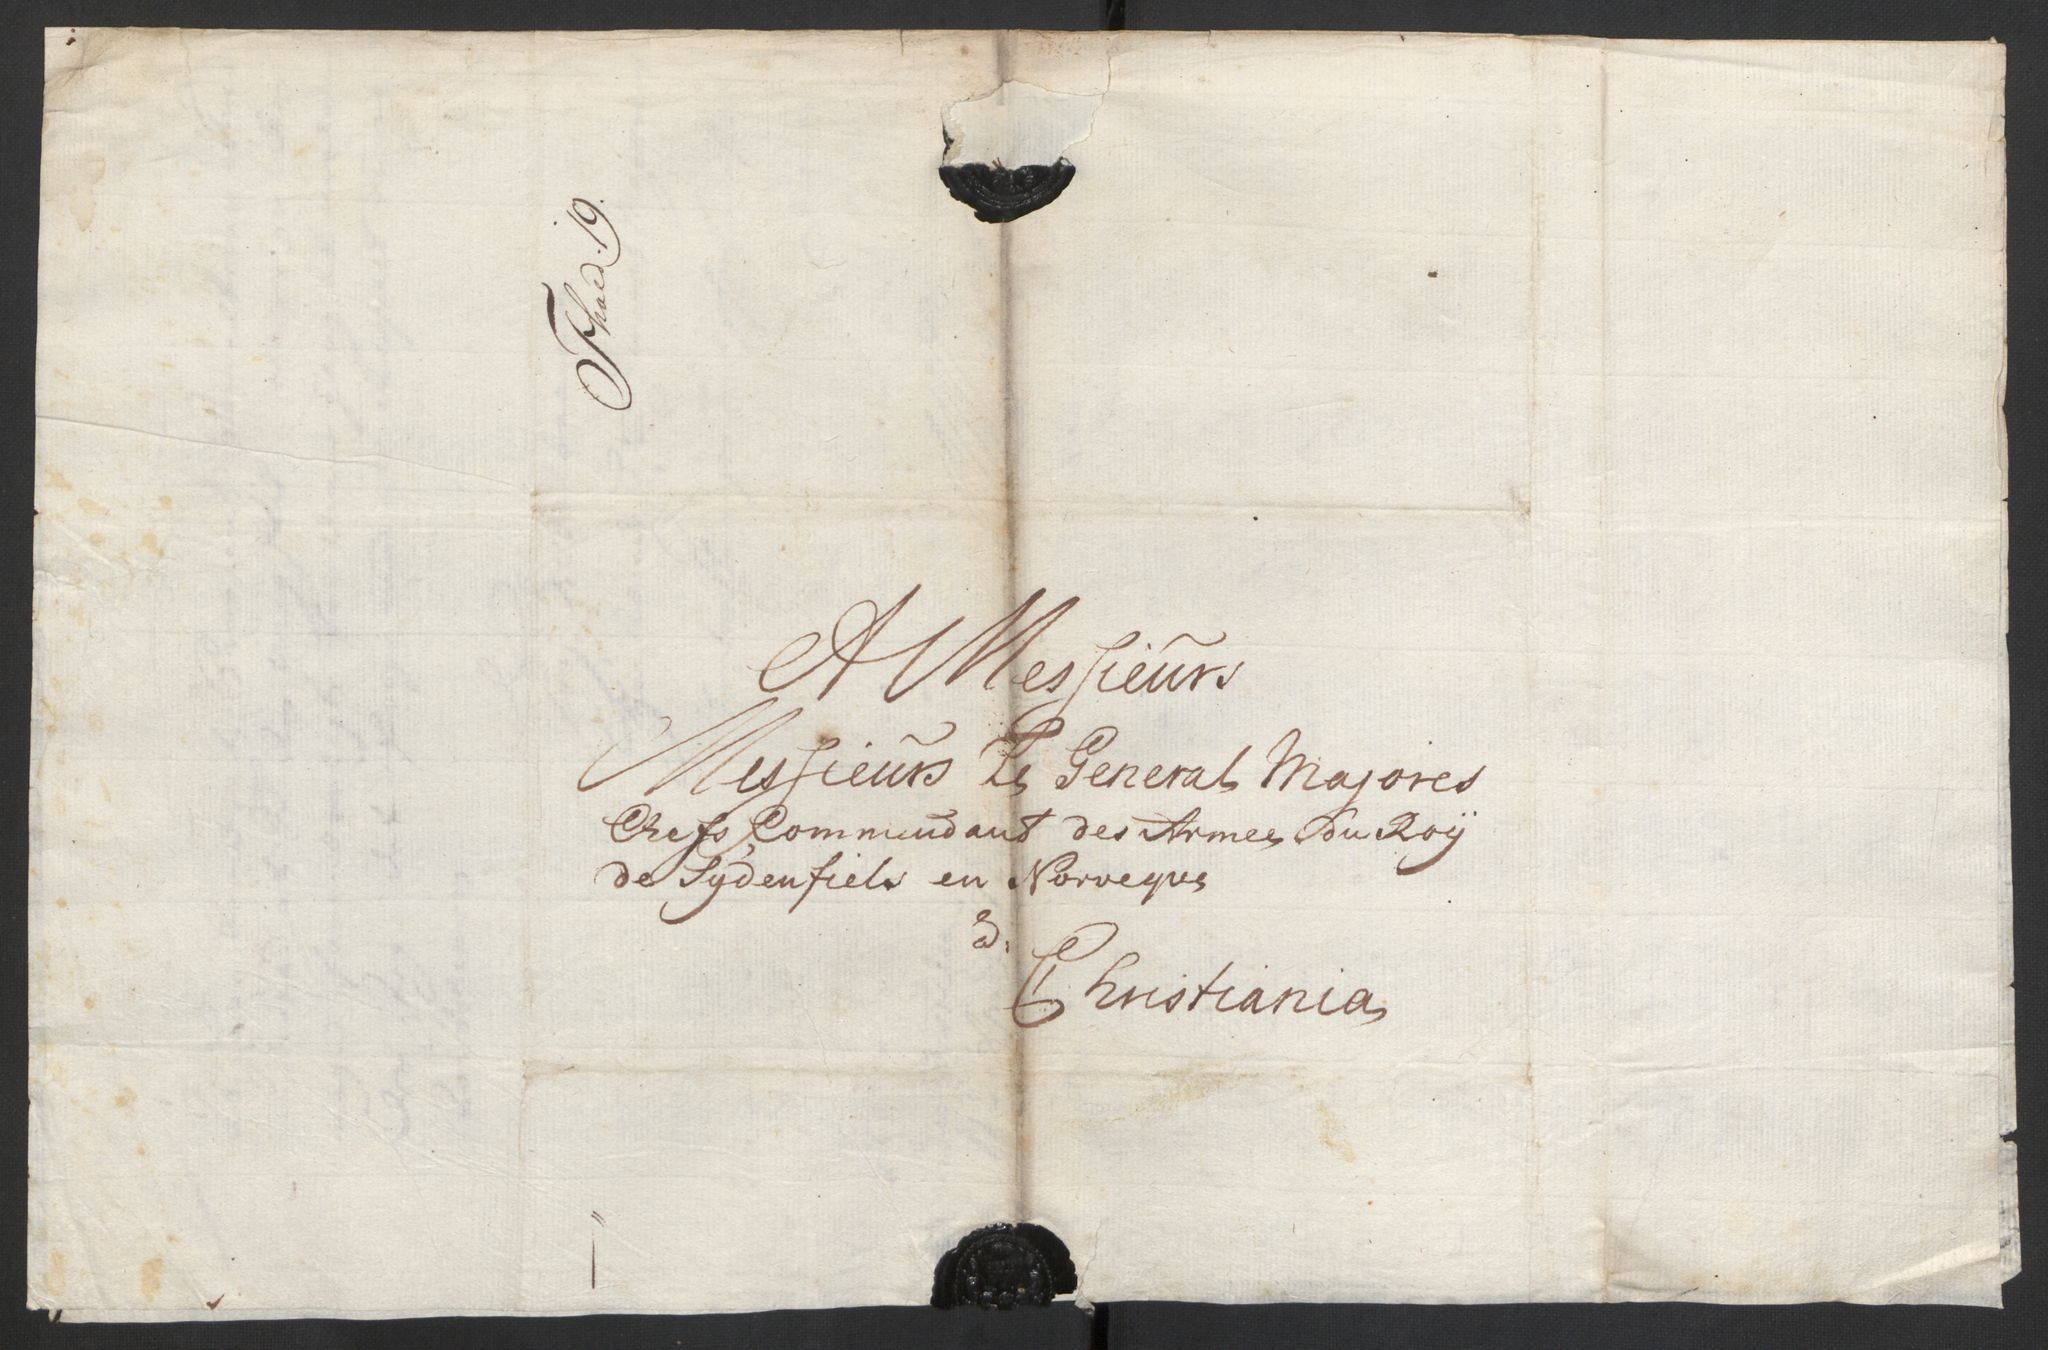 A Messieurs
Messieurs Le General Majores
Chefs Commendant des Armee du Roÿ
de Sydenfiels en Norvegve
a
Christiania